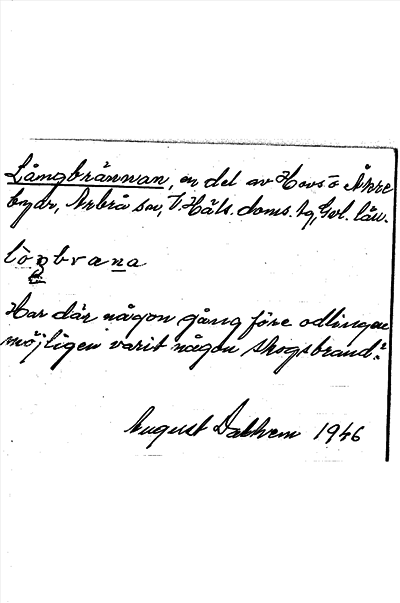 Långbrännan, en del av Hovsö Åkre
bydr, Arbrå sn, V. Häls. doms. tg, Gvl. län.
lòŋbræna
Har där någon gång före odlingen
möjligen varit någon skogsbrand?
August Dalhem 1946